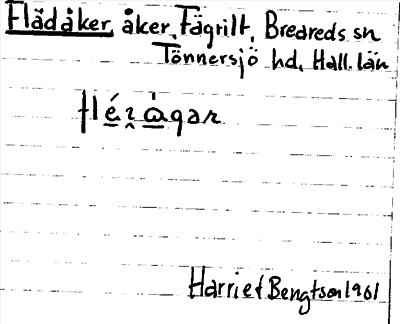 Flädåker, åker, Fägrilt, Breareds sn
Tönnersjö hd, Hall. län
fléɀågar
Harriet Bengtson 1961